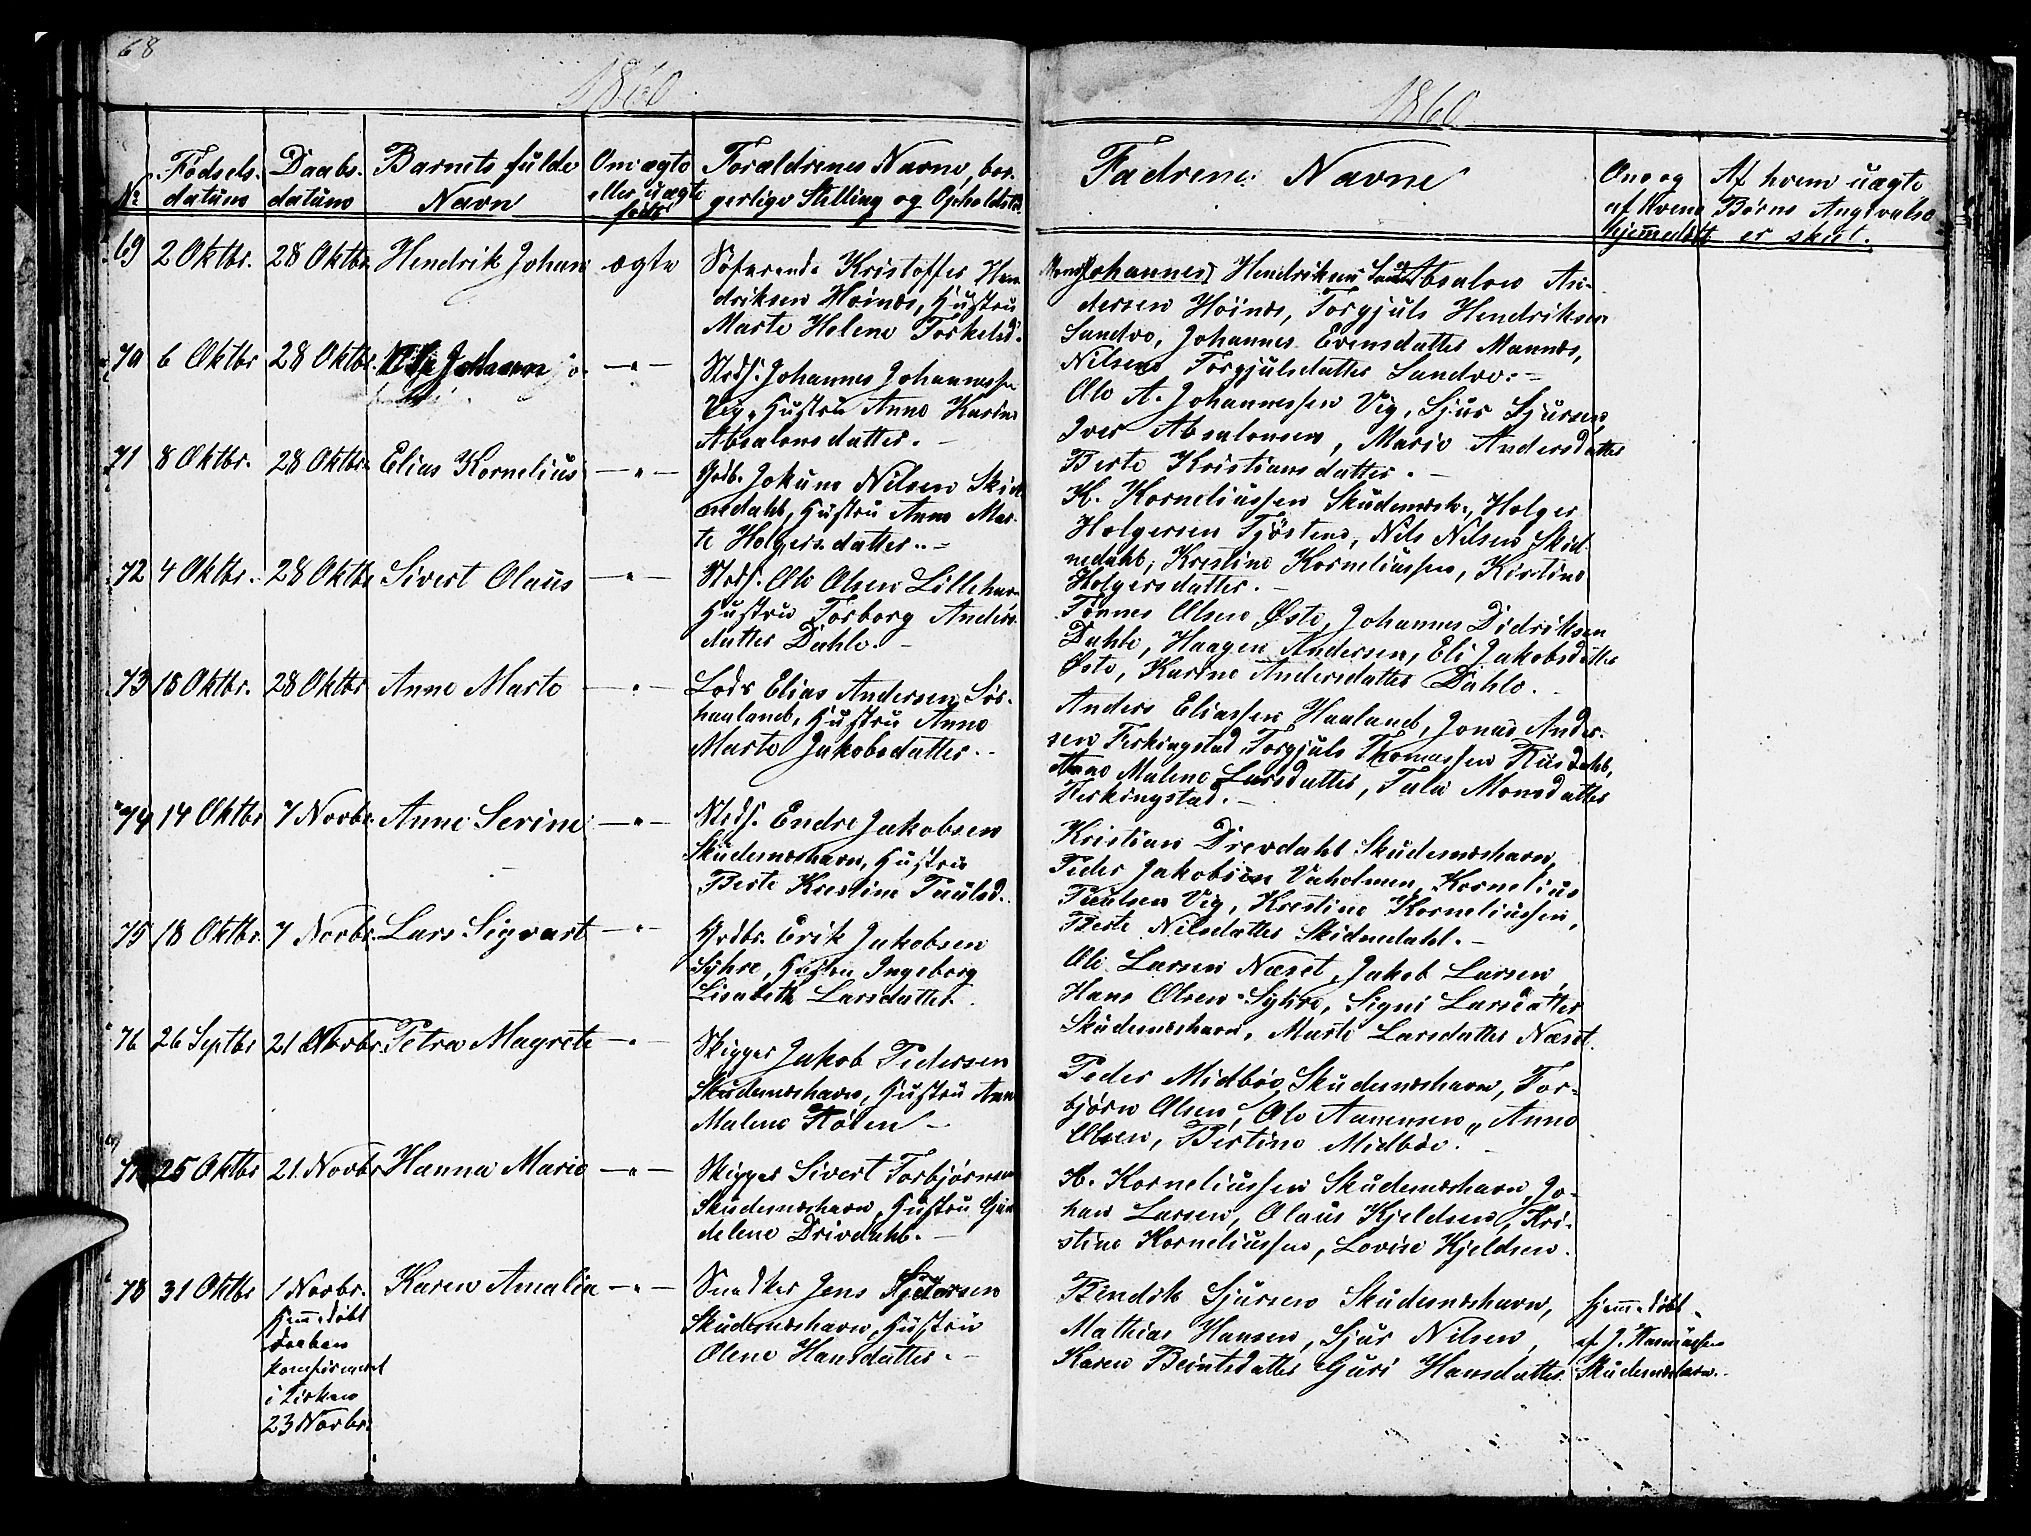 68
1860
1860
No Fødsels- datum
Daabs- datum
Barnets fulde Navn
Om ægte eller uægte født
Forældrenes Navne, bor-
gerlige Stilling og Opholdsted
Faddrenes Navne
Om og af hvem hjemmedøbt
Af hvem uægte Børns Angivelse er skeet.
69 2 Oktbr. 28 Oktbr. Hendrik Johan ægte
Søfarende Kristoffer Hen-
driksen Høinæs, Hustru
Marte Helene Torkelsd.
Johannes Hendriksen Absalon An-
dersen Høinæs, Torgjuls Hendriksen
Sandve, Johannes Evensdatter Mannes,
Nilsen Torgjulsdatter Sandve. -
70 6 Oktbr 28 Oktbr. -"-
Strds. Johannes Johannessen
Vig, Hustru Anne Karine
Absalonsdatter. -
Ole A. Johannessen Vig, Sjur Sjursen,
Iver Absalonsen, Marie Andersdatter
Berte Kristiansdatter. -
71 8 Oktbr. 28 Oktbr. Elias Kornelius -"-
Grdb. Jokum Nilsen Skid-
nedahl, Hustru Anne Mar-
te Holgersdatter. -
K. Korneliussen Skudenæsh., Holger
Holgersen Tjøsten, Nils Nilsen Skid-
nedahl, Krestine Korneliussen, Kistine
Holgersdatter. -
72 4 Oktbr. 28 Oktbr Sivert Olaus -"-
Strds. Ole Olsen Lillehav
Hustru Torborg Anders-
datter Dahle. -
Tønnes Olsen Øste, Johannes Didriksen
Dahle, Haagen Andersen, Eli Jakobsdatter
Øste, Karine Andersdatter Dahle. -
73 18 Oktbr. 28 Oktbr Anne Marte -"-
Lods Elias Andersen Sør-
haaland, Hustru Anne
Marte Jakobsdatter. -
Anders Eliassen Haaland, Jonas Ander-
sen Ferkingstad Torgjuls Thomassen Risdahl,
Anne Malene Larsdatter, Tala Monsdatter
Ferkingstad. -
74 14 Oktbr 7 Novbr. Anne Serine -"-
Strds. Endre Jakobsen
Skudenæshavn, Hustru
Berte Krestine Paulsd.
Kristian Drevdahl Skudenæshavn,
Peder Jakobsen Vaholmen, Kornelius
Paulsen Vig, Krestine Korneliussen,
Berte Nilsdatter Skidnedahl. -
75 18 Oktbr. 7 Novbr. Lars Sigvart -"-
Grdbr. Erik Jakobsen
Syhre, Hustru Ingeborg
Lisabeth Larsdatter.
Ole Larsen Næset, Jakob Larsen,
Hans Olsen Syhre, Signi Larsdatter
Skudenæshavn, Marte Larsdatter Næset.
76 26 Septbr 21 Novbr. Petra Magrete -"-
Skipper Jakob Pedersen
Skudenæshavn, Hustru Anne
Malene -
Peder Midbøe Skudenæshavn, Tor-
bjørn Olsen, Ole Aamensen, Anne
Olsen, Bertine Midbøe. -
77 25 Oktbr 21 Novbr Hanna Marie -"-
Skipper Sivert Torbjørnsen
Skudenæshavn, Hustru Gun
delene Drivdahl. -
H. Korneliussen Skudenæshavn, Jo-
han Larsen, Olaus Kjeldsen, Kri-
stine Korneliussen, Lovise Kjeldsen.
78 31 Oktbr 1 Novbr. Karen Amalia -"-
Hjemdøbt
Daaben
konfirmeret
i Kirken
23 Novbr.
Snedker Jens
Skudenæshavn, Hustru
Olene Hansdatter. -
Bendik Sjursen Skudenæshavn,
Mathias Hansen, Sjur Nilsen,
Karen Beintsdatter Guri Hansdatter
Hjemmedøbt
af J. Rasmussen
Skudenæshavn.